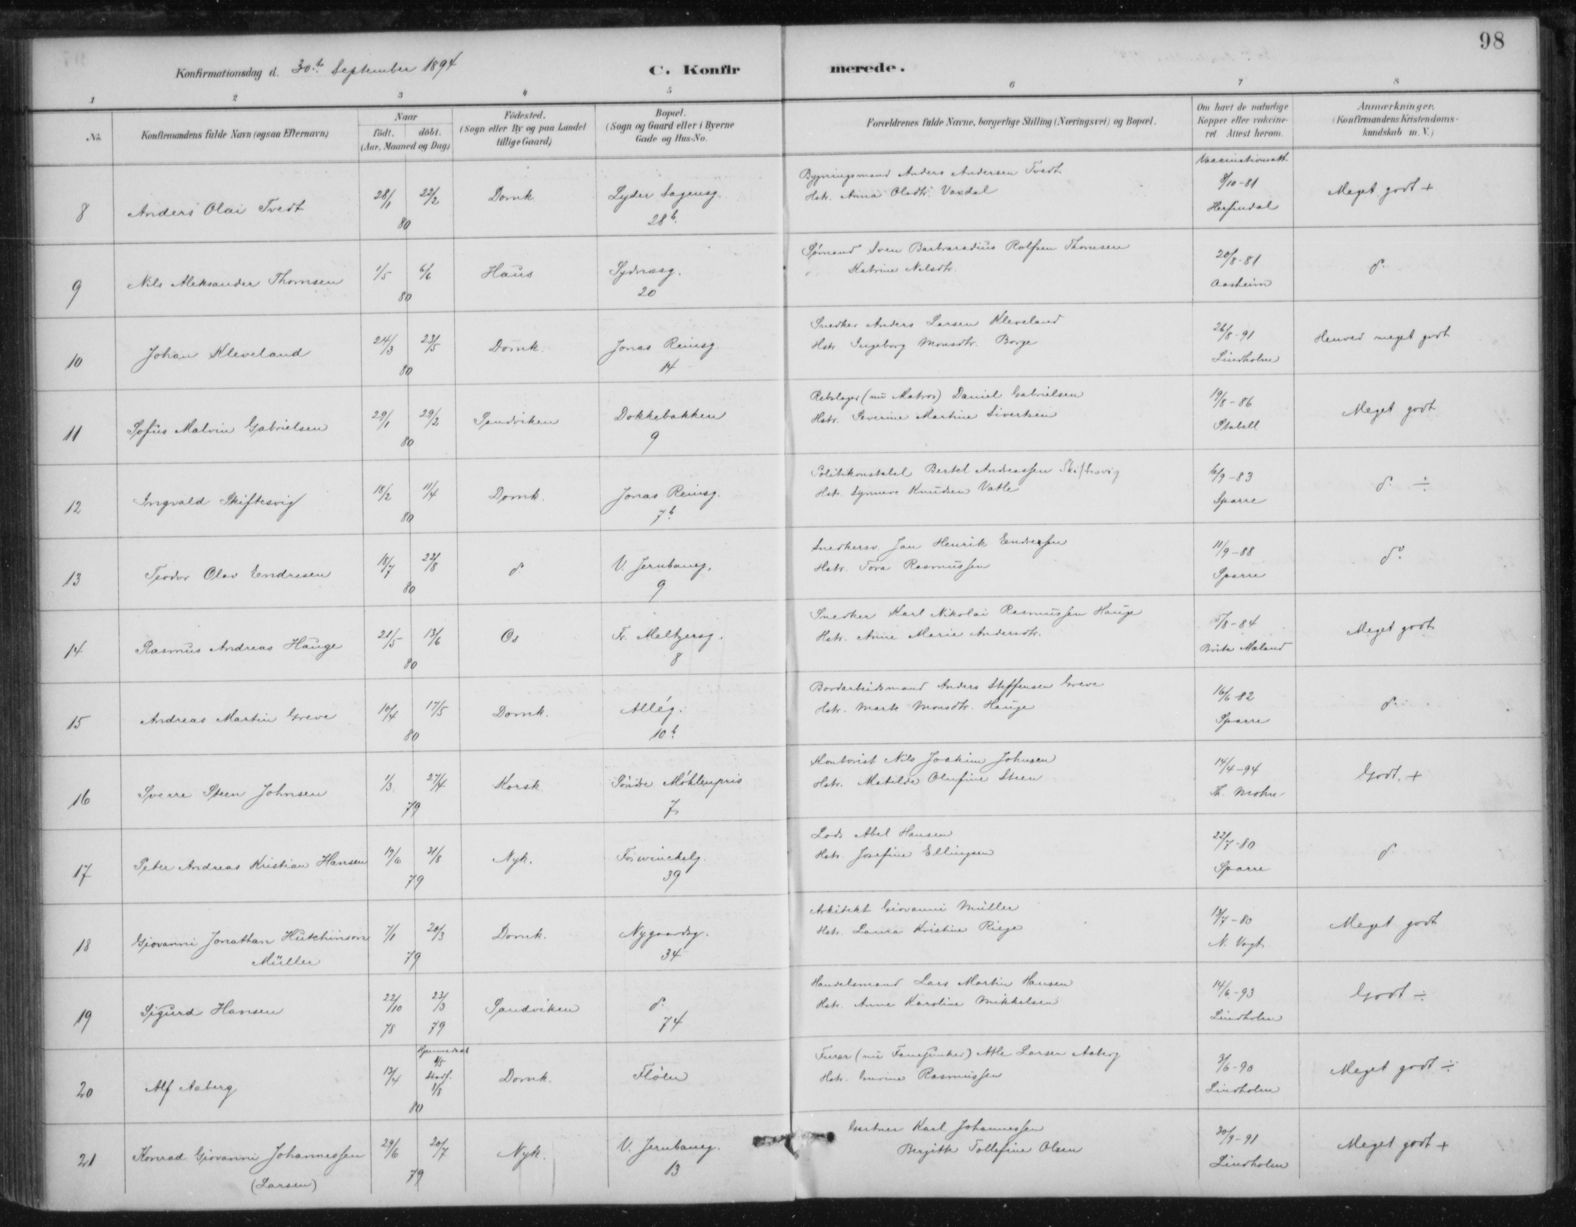 98
Konfirmationsdag d. 30te September 1894
C. Konfirmerede.
1 2 3 4 5 6 7 8
No. Konfirmandens fulde Navn (ogsaa Efternavn) Naar født. døbt. (Aar, Maaned og Dag) Fødested. (Sogn eller By og paa Landet tillige Gaard) Bopæl. (Sogn og Gaard eller i Byerne Gade og Hus-No. Forældrenes fulde Navne, borgerlige Stilling (Næringsvei) og Bopæl. Om havt de naturlige Kopper eller vakcineret. Attest herom. Anmærkninger. (Konfirmandens Kristendomskundskab m. V.)
8 Anders Olai Tvedt 28/1 22/2 80 Domk. Lyder Sagensg. 28b.
Bygningsmand Anders Andersen Tvedt
Hstr. Anna Olsdtr. Vaxdal
Vaccinationsatt. 9/10-81 Herfindal Meget godt +
9 Nils Aleksander Thomsen 1/5 6/6 80 Haus Sydnæsg. 20
Sømand Sven Barbaradius Rolfsen Thomsen
Katrine Nilsdtr.
20/8-81 Aasheim do.
10 Johan Kleveland 24/3 23/5 80 Domk. Jonas Reinsg. 14
Snedker Anders Larsen Kleveland
Hstr. Ingeborg Monsdtr. Borge
26/8-91 Lindholm Henved meget godt
11 Sofus Malvin Gabrielsen 29/1 29/2 80 Sandviken Dokkebakken 9
Rebslager (nu Matros) Daniel Gabrielsen
Hstr. Severine Martine Sivertsen
19/8-86 Stabell Meget godt
12 Ingvald Skiftesvig 18/2 11/4 80 Domk. Jonas Reinsg. 7b.
Politikonstabel Bertel Andreassen Skiftesvig
Hstr. Synneve Knudsen Vatle
6/9-83 Sparre do. ÷
13 Teodor Olav Endresen 18/7 22/8 80 do. V. Jernbaneg. 9
Snedkersv. Jan Henrik Endresen
Hstr. Tora Rasmussen
11/9-88 Sparre do.
14 Rasmus Andreas Hauge 21/5 13/6 80 Os Fr. Meltzersg. 8
Snedker Karl Nikolai Rasmussen Hauge
Hstr. Anne Marie Andersdtr.
5/8-84 Maland Meget godt
15 Andreas Martin Greve 10/4 17/5 80 Domk. Alleg. 10b.
Bordarbeidsmand Anders Steffensen Greve
Hstr. Marta Monsdtr. Hauge
16/6-82 Sparre do.
16 Sverre Steen Johnsen 1/3 27/4 79 Korsk. Søndre Møhlenpris 7
Kontorist Nils Joakim Johnsen
Hstr. Matilde Olufine Steen
14/4-94 Th. Mohn Godt. +
17 Peter Andreas Kristian Hansen 19/6 31/8 79 Nyk. Torwinckelg. 39
Lods Abel Hansen
Hstr. Josefine Ellingsen
22/7-80 Sparre do.
18 Giovanni Jonathan Hutchinson Müller 7/1 20/3 79 Domk. Nygaardsg. 34
Arkitekt Giovanni Müller
Hstr. Laura Kristine Riege
N. Vogt Meget godt
19 Sigurd Hansen 22/10 78 23/3 79 Sandviken do. 74
Handelsmand Lars Martin Hansen
Hstr. Anne Karoline Mikkelsen
14/6-93 Lindholm Godt ÷
20 Alf Aaberg 13/4 Hjemmedøbt Stadf. 80 Domk. Fløien
Furer (nu Fanejunker) Atle Larsen Aaberg
Hstr. Rasmussen
3/6-90 Lindholm Meget godt ÷
21 Konrad Giovanni Johannessen (Larsen) 29/6 20/7 79 Nyk. V. Jernbaneg. 13
Gartner Karl Johannessen
Birgitte Tollefine Olsen
30/9-91 Lindholm Meget godt +